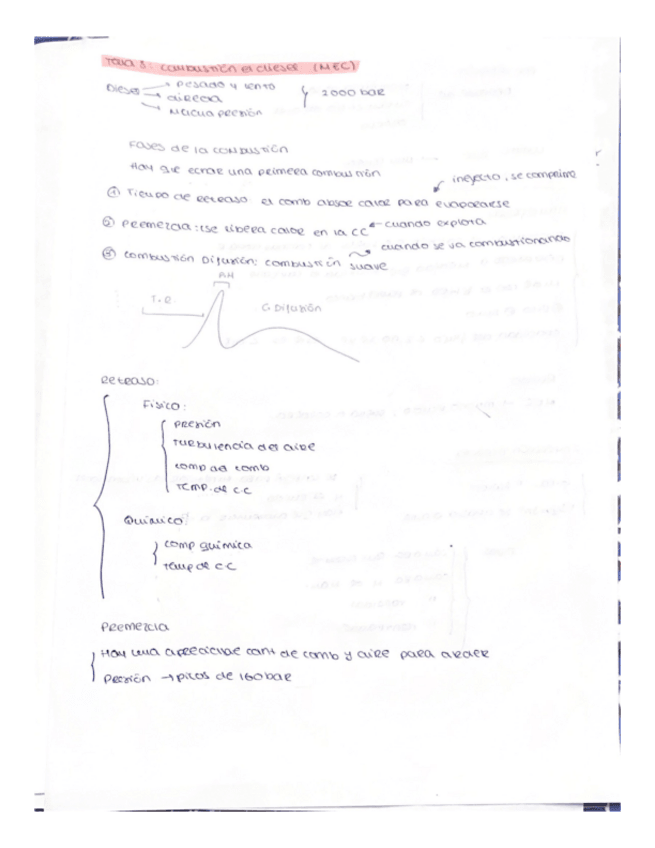 Tema 3: Combustión el diesel (MEC)
Diesel → pesado y lento
→ directa
→ Mucha presión
} 2000 bar
Fases de la combustión
Hay que echar una primera combustión
inyecto, se comprime
① Tiempo de retraso el comb absor calor para evaporarse
② Premezcla: se libera calor en la CC ← cuando explota
cuando se va combustionando
③ Combustión Difusión: combustión suave
T.R.
C Difusión
Retraso:
Fisico:
Presión
Turbulencia del aire
comp del comb
Temp. de C.C
Quimico:
comp quimica
Temp de C.C
Premezcla
Hay una apreciable cant de comb y aire para arder
Presión → picos de 160 bar